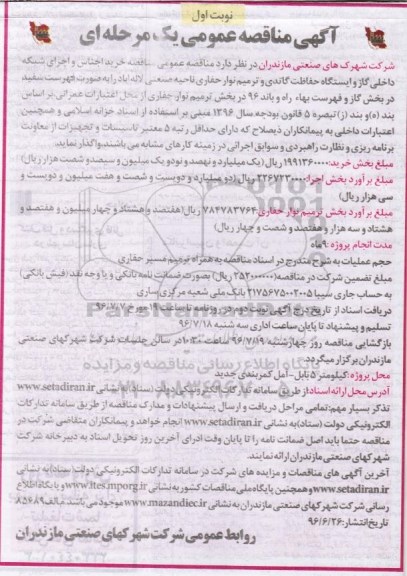 نوبت اول
آگهی مناقصه عمومی یک مرحله ای
شرکت شهرک های صنعتی مازندران در نظر دارد مناقصه عمومی مناقصه خرید اجناس و اجرای شبکه
داخلی گاز و ایستگاه حفاظت کاتدی و ترمیم نوار حفاری ناحیه صنعتی لاله آباد را به صورت فهرست سفید
در بخش گاز و فهرست بهاء راه و باند ۹۶ در بخش ترمیم نوار حفاری از محل اعتبارات عمرانی بر اساس
بند (ه) و بند (ز) تبصره ۵ قانون بودجه سال ۱۳۹۶ مبنی بر استفاده از اسناد خزانه اسلامی و همچنین
اعتبارات داخلی به پیمانکاران ذیصلاح که دارای حداقل رتبه ۵ معتبر تاسیسات و تجهیزات از معاونت
برنامه ریزی و نظارت راهبردی و سوابق اجرایی در زمینه کارهای مشابه می باشند، واگذار نماید.
مبلغ بخش خرید: ۱۹۹۱۳۶۰۰۰۰ ریال (یک میلیارد و نهصد و نود و یک میلیون و سیصد و شصت هزار ریال)
مبلغ برآورد بخش اجرا: ۲۲۶۷۲۳۰۰۰۰ ریال (دو میلیارد و دویست و شصت و هفت میلیون و دویست و
سی هزار ریال)
مبلغ برآورد بخش ترمیم نوار حفاری: ۷۸۴۷۸۳۷۶۴ ریال (هفتصد و هشتاد و چهار میلیون و هفتصد و
هشتاد و سه هزار و هفتصد و شصت و چهار ریال)
مدت انجام پروژه: ۹ ماه
حجم عملیات به شرح مندرج در اسناد مناقصه به همراه ترمیم مسیر حفاری
مبلغ تضمین شرکت در مناقصه (۲۵۲۰۰۰۰۰۰ ریال) بصورت ضمانت نامه بانکی و یا وجه نقد (فیش بانکی)
به حساب جاری سیبا ۲۱۷۵۶۷۵۰۰۲۰۰۵ بانک ملی شعبه مرکزی ساری
دریافت اسناد از تاریخ درج آگهی نوبت دوم در روزنامه تا ساعت ۱۹ مورخ ۹۶/۷/۷
تسلیم و پیشنهاد تا پایان ساعت اداری سه شنبه ۹۶/۷/۱۸
بازگشایی مناقصه روز چهارشنبه ۹۶/۷/۱۹ ساعت ۱۰:۳۰ در سالن جلسات شرکت شهرکهای صنعتی
مازندران برگزار میگردد.
محل پروژه: کیلومتر ۵ بابل - آمل کمربندی جدید
آدرس محل ارائه اسناد: از طریق سامانه تدارکات الکترونیکی دولت (ستاد) به نشانی www.setadiran.ir
تذکر بسیار مهم: تمامی مراحل دریافت و ارسال پیشنهادات و مدارک مناقصه از طریق سامانه تدارکات
الکترونیکی دولت (ستاد) به نشانی www.setadiran.ir انجام خواهد و پیمانکاران متقاضی شرکت در
مناقصه حتما باید اصل ضمانت نامه را تا پایان وقت ادرای آخرین روز تحویل اسناد به دبیرخانه شرکت
شهرکهای صنعتی مازندران ارائه نمایند.
آخرین آگهی های مناقصات و مزایده های شرکت در سامانه تدارکات الکترونیکی دولت (ستاد) به نشانی
www.setadiran.ir و همچنین پایگاه ملی مناقصات کشور به نشانی www.iets.mporg.ir و پایگاه اطلاع
رسانی شرکت شهرکهای صنعتی مازندران به نشانی www.mazandiec.ir موجود می باشد. م الف ۸۵۶۸۹
تاریخ انتشار: ۹۶/۶/۲۶
روابط عمومی شرکت شهرکهای صنعتی مازندران